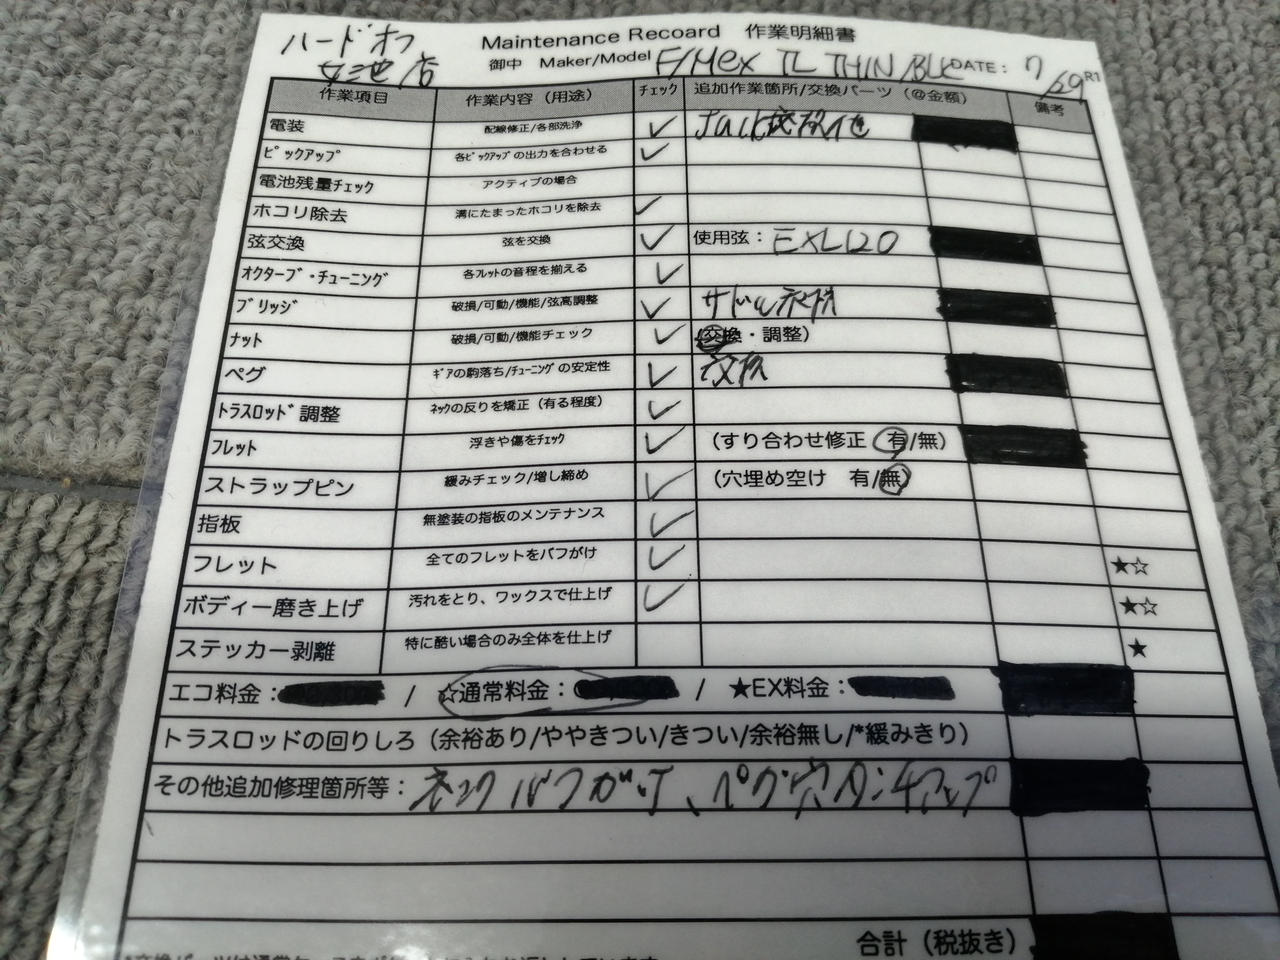 ハードオフ
女池店
Maintenance Recoard 作業明細書
御中 Maker/Model F/Mex TL THIN/BLK DATE: 7/29 R1
作業項目 作業内容（用途） チェック 追加作業箇所/交換パーツ（@金額） 備考
電装 配線修正/各部洗浄 ✓ Jack交換他
ﾋﾟｯｸｱｯﾌﾟ 各ﾋﾟｯｸｱｯﾌﾟの出力を合わせる ✓
電池残量ﾁｪｯｸ アクティブの場合
ホコリ除去 溝にたまったホコリを除去 ✓
弦交換 弦を交換 ✓ 使用弦：EXL120
ｵｸﾀｰﾌﾞ・ﾁｭｰﾆﾝｸﾞ 各ﾌﾚｯﾄの音程を揃える ✓
ﾌﾞﾘｯｼﾞ 破損/可動/機能/弦高調整 ✓ サドル交換
ﾅｯﾄ 破損/可動/機能チェック ✓ (交換・調整)
ペグ ｷﾞｱの駒落ち/ﾁｭｰﾆﾝｸﾞの安定性 ✓ 交換
ﾄﾗｽﾛｯﾄﾞ調整 ﾈｯｸの反りを矯正（有る程度） ✓
ﾌﾚｯﾄ 浮きや傷をﾁｪｯｸ ✓ (すり合わせ修正 有/無)
ストラップピン 緩みチェック/増し締め ✓ (穴埋め空け 有/無)
指板 無塗装の指板のメンテナンス ✓
フレット 全てのフレットをバフがけ ✓ ★☆
ボディー磨き上げ 汚れをとり、ワックスで仕上げ ✓ ★☆
ステッカー剥離 特に酷い場合のみ全体を仕上げ ★
エコ料金： / ☆通常料金： / ★EX料金：
トラスロッドの回りしろ（余裕あり/ややきつい/きつい/余裕無し/*緩みきり）
その他追加修理箇所等：ネックバフガケ、ペグ穴タッチアップ
合計（税抜き）